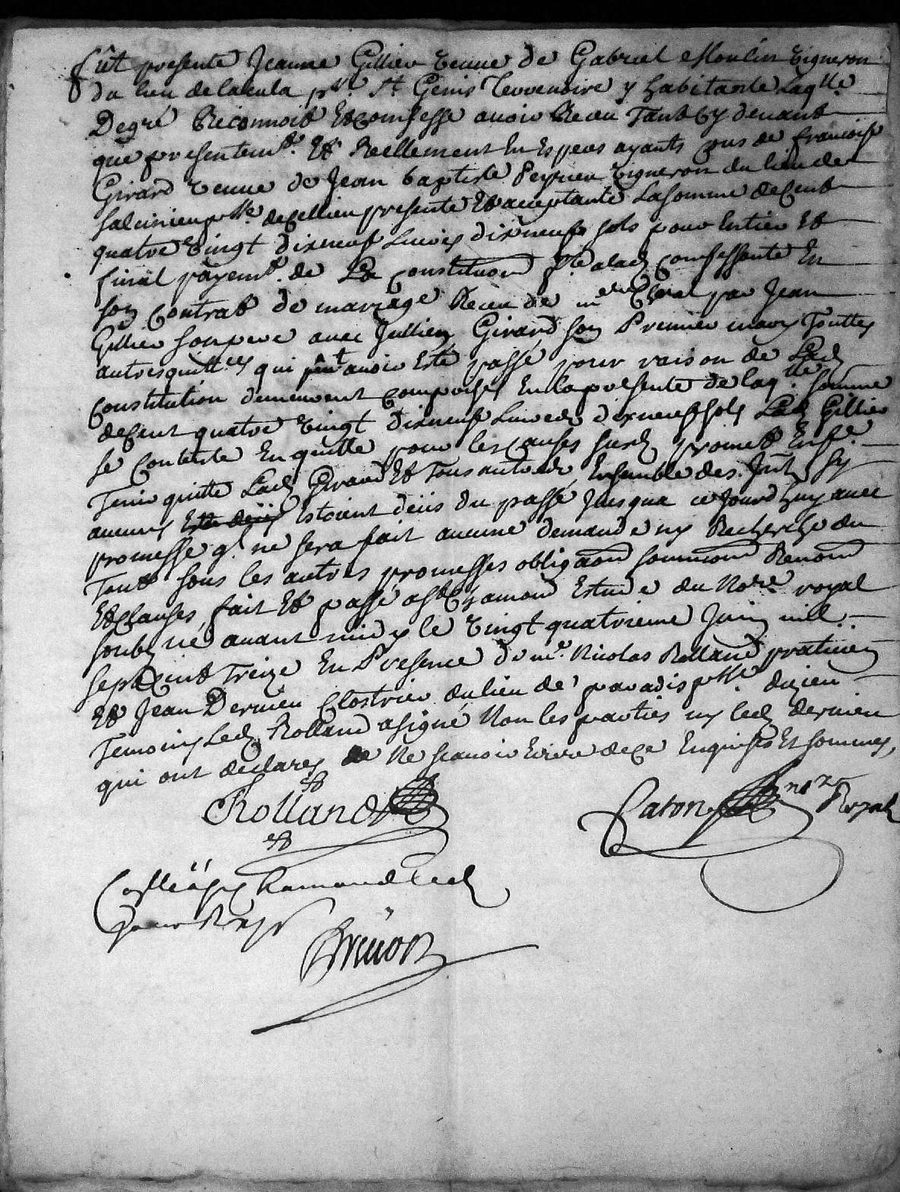 Fût presente Jeanne Gillier veuve de Gabriel Moulin vigneron
du lieu de lacula psse St Genis Terrenoire y habitante laqlle
Degré Reconnoit Et Confesse avoir Receu Tant Cy devant
que presentemt. Et Reellement En Especes ayants cours de francoise
Girard veuve de Jean Baptiste Peyrieu vigneron du lieu de
psse. de Cellieu presente Et acceptante La somme de Cent
quatre vingt dixneuf Livres dixneuf sols pour Entier Et
finiel payemt. de La Constitution fte alad Confessente En
son Contrat de mariage Receu de me par Jean
Gillier son pere avec Jullien Girard son Premier mary Touttes
autres quittces qui pnt avoir Esté passé pour raison de Lad
Constitution demeurent Comprises En la presente de laqlle somme
de Cent quatre vingt dixneuf Livres dixneuf sols Lad Gillier
se Contente En quitte pour les Causes susd promet En fe.
Tenir quitte Lad Girard Et Tous autres Ensemble des Intts sy
aucuns Estoient deüs du passé Jusqua ce Jourdhuy avec
promesse q. ne sera fait aucune demande ny Recherche du
Tout sous les autres promesses obligaõn soumõn Renõn
Et Clauses, fait Et passé a St Chamond Estude du Nore. royal
soubsné avant midy le vingt quatrieme Juin mil
sept Cent Treize En Presence de me. Nicolas Rolland praticien
Et Jean Dernieu Clostrier du lieu de paradis psse. dizieu
Temoins Led Rolland a signé Non les parties ny led dernieu
qui ont declares Ne scavoir Ecrire de Ce Enquises Et sommes,
Rolland
Caton nore Royal
Chamond Led